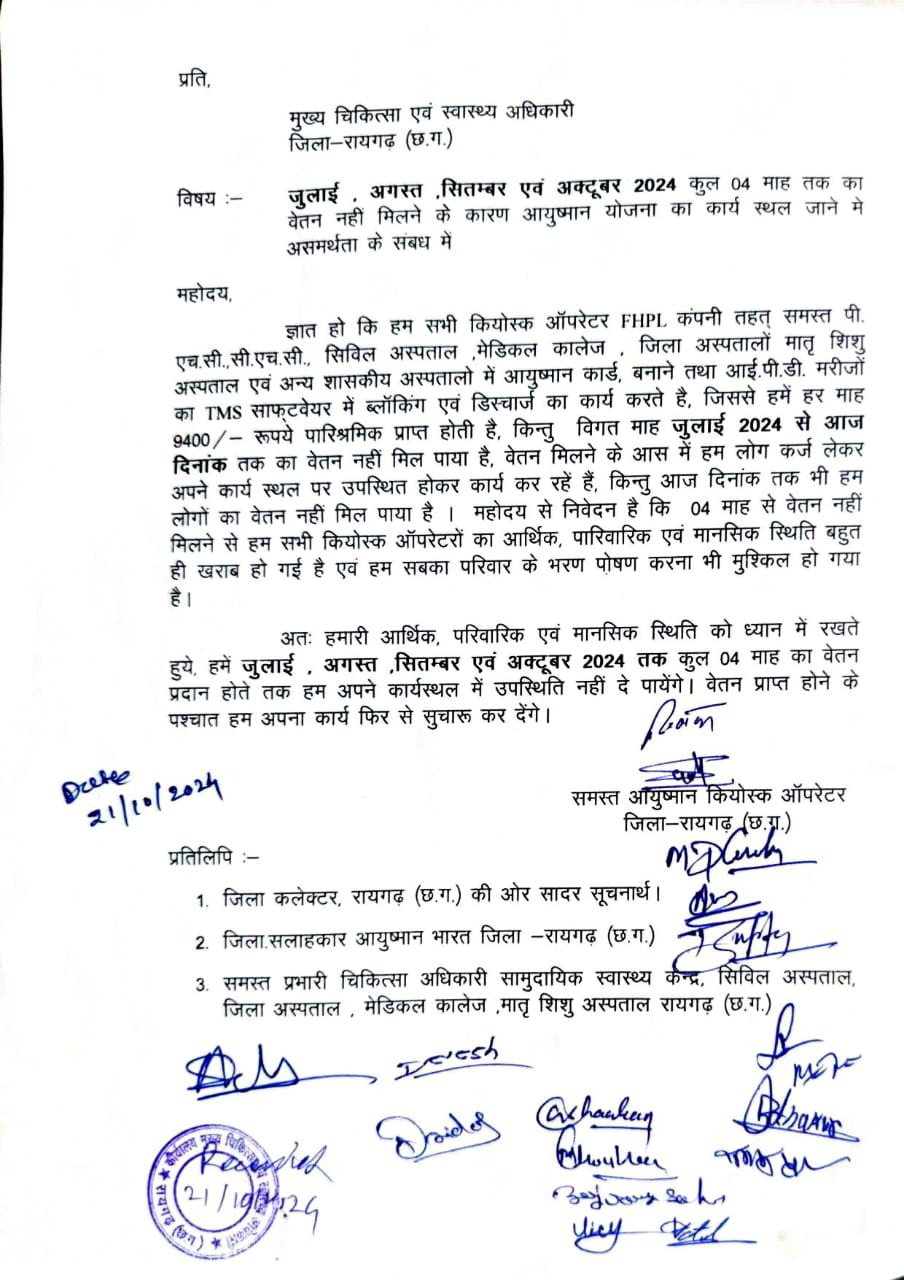 प्रति,
मुख्य चिकित्सा एवं स्वास्थ्य अधिकारी
जिला–रायगढ़ (छ.ग.)
विषय :– जुलाई , अगस्त ,सितम्बर एवं अक्टूबर 2024 कुल 04 माह तक का
वेतन नहीं मिलने के कारण आयुष्मान योजना का कार्य स्थल जाने मे
असमर्थता के संबध में
महोदय,
ज्ञात हो कि हम सभी कियोस्क ऑपरेटर FHPL कंपनी तहत् समस्त पी.
एच.सी.,सी.एच.सी., सिविल अस्पताल ,मेडिकल कालेज , जिला अस्पतालों मातृ शिशु
अस्पताल एवं अन्य शासकीय अस्पतालो में आयुष्मान कार्ड, बनाने तथा आई.पी.डी. मरीजों
का TMS साफ्टवेयर में ब्लॉकिंग एवं डिस्चार्ज का कार्य करते है, जिससे हमें हर माह
9400/– रूपये पारिश्रमिक प्राप्त होती है, किन्तु विगत माह जुलाई 2024 से आज
दिनांक तक का वेतन नहीं मिल पाया है, वेतन मिलने के आस में हम लोग कर्ज लेकर
अपने कार्य स्थल पर उपस्थित होकर कार्य कर रहें हैं, किन्तु आज दिनांक तक भी हम
लोगों का वेतन नहीं मिल पाया है । महोदय से निवेदन है कि 04 माह से वेतन नहीं
मिलने से हम सभी कियोस्क ऑपरेटरों का आर्थिक, पारिवारिक एवं मानसिक स्थिति बहुत
ही खराब हो गई है एवं हम सबका परिवार के भरण पोषण करना भी मुश्किल हो गया
है।
अतः हमारी आर्थिक, परिवारिक एवं मानसिक स्थिति को ध्यान में रखते
हुये, हमें जुलाई , अगस्त ,सितम्बर एवं अक्टूबर 2024 तक कुल 04 माह का वेतन
प्रदान होते तक हम अपने कार्यस्थल में उपस्थिति नहीं दे पायेंगे। वेतन प्राप्त होने के
पश्चात हम अपना कार्य फिर से सुचारू कर देंगे।
Date
21/10/2024
समस्त आयुष्मान कियोस्क ऑपरेटर
जिला–रायगढ़ (छ.ग.)
प्रतिलिपि :–
1. जिला कलेक्टर, रायगढ़ (छ.ग.) की ओर सादर सूचनार्थ।
2. जिला.सलाहकार आयुष्मान भारत जिला –रायगढ़ (छ.ग.)
3. समस्त प्रभारी चिकित्सा अधिकारी सामुदायिक स्वास्थ्य केन्द्र, सिविल अस्पताल,
जिला अस्पताल , मेडिकल कालेज ,मातृ शिशु अस्पताल रायगढ़ (छ.ग.)
21/10/24